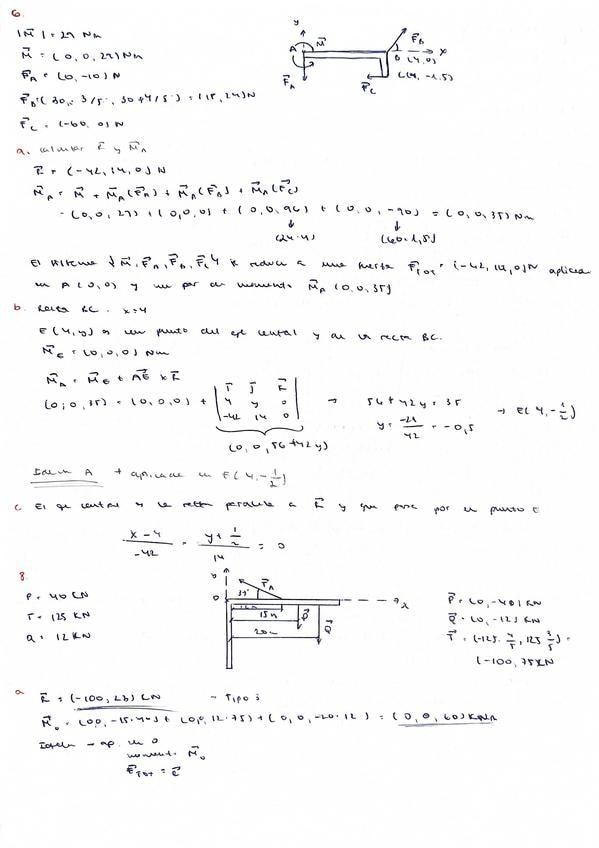 6.
|M⃗| = 27 Nm
M⃗ = (0, 0, 27) Nm
F⃗A = (0, -10) N
F⃗B = (30 · 3/5, 30 · 4/5) = (18, 24) N
F⃗C = (-60, 0) N
y
A
M⃗
F⃗B
x
B
(4, 0)
F⃗A
F⃗C
C(4, -1,5)
a. calcular R⃗ y M⃗A
R⃗ = (-42, 14, 0) N
M⃗A = M⃗ + M⃗A(F⃗A) + M⃗A(F⃗B) + M⃗A(F⃗C)
= (0, 0, 27) + (0, 0, 0) + (0, 0, 96) + (0, 0, -90) = (0, 0, 35) Nm
(24·4) (60·1,5)
El sistema {M⃗, F⃗A, F⃗B, F⃗C} se reduce a una fuerza F⃗TOT = (-42, 14, 0) N aplicada
en A (0, 0) y un par de momento M⃗A (0, 0, 35)
b. Recta BC. x = 4
E (4, y) es un punto del eje central y de la recta BC.
M⃗E = (0, 0, 0) Nm
M⃗A = M⃗E + AE⃗ x R⃗
(0, 0, 35) = (0, 0, 0) + | i j k ; 4 y 0 ; -42 14 0 | → 56 + 42y = 35
y = -21/42 = -0,5 → E(4, -1/2)
(0, 0, 56 + 42y)
A → aplicada en E(4, -1/2)
c El eje central y la recta paralela a R⃗ y que pasa por un punto E
(x - 4)/-42 = (y + 1/2)/14 = 0
8.
P = 40 KN
T = 125 KN
Q = 12 KN
O
T⃗A
x
15m
20m
P⃗
Q⃗
P⃗ = (0, -40) KN
Q⃗ = (0, -12) KN
T⃗ = (-125 · 4/5, 125 · 3/5) =
(-100, 75) KN
a R⃗ = (-100, 23) KN - Tipo 3
M⃗o = (0, 0, -15·40) + (0, 0, 12·75) + (0, 0, -20·12) = (0, 0, 60) KNm
→ ap. en O
momento M⃗o
F⃗TOT = R⃗